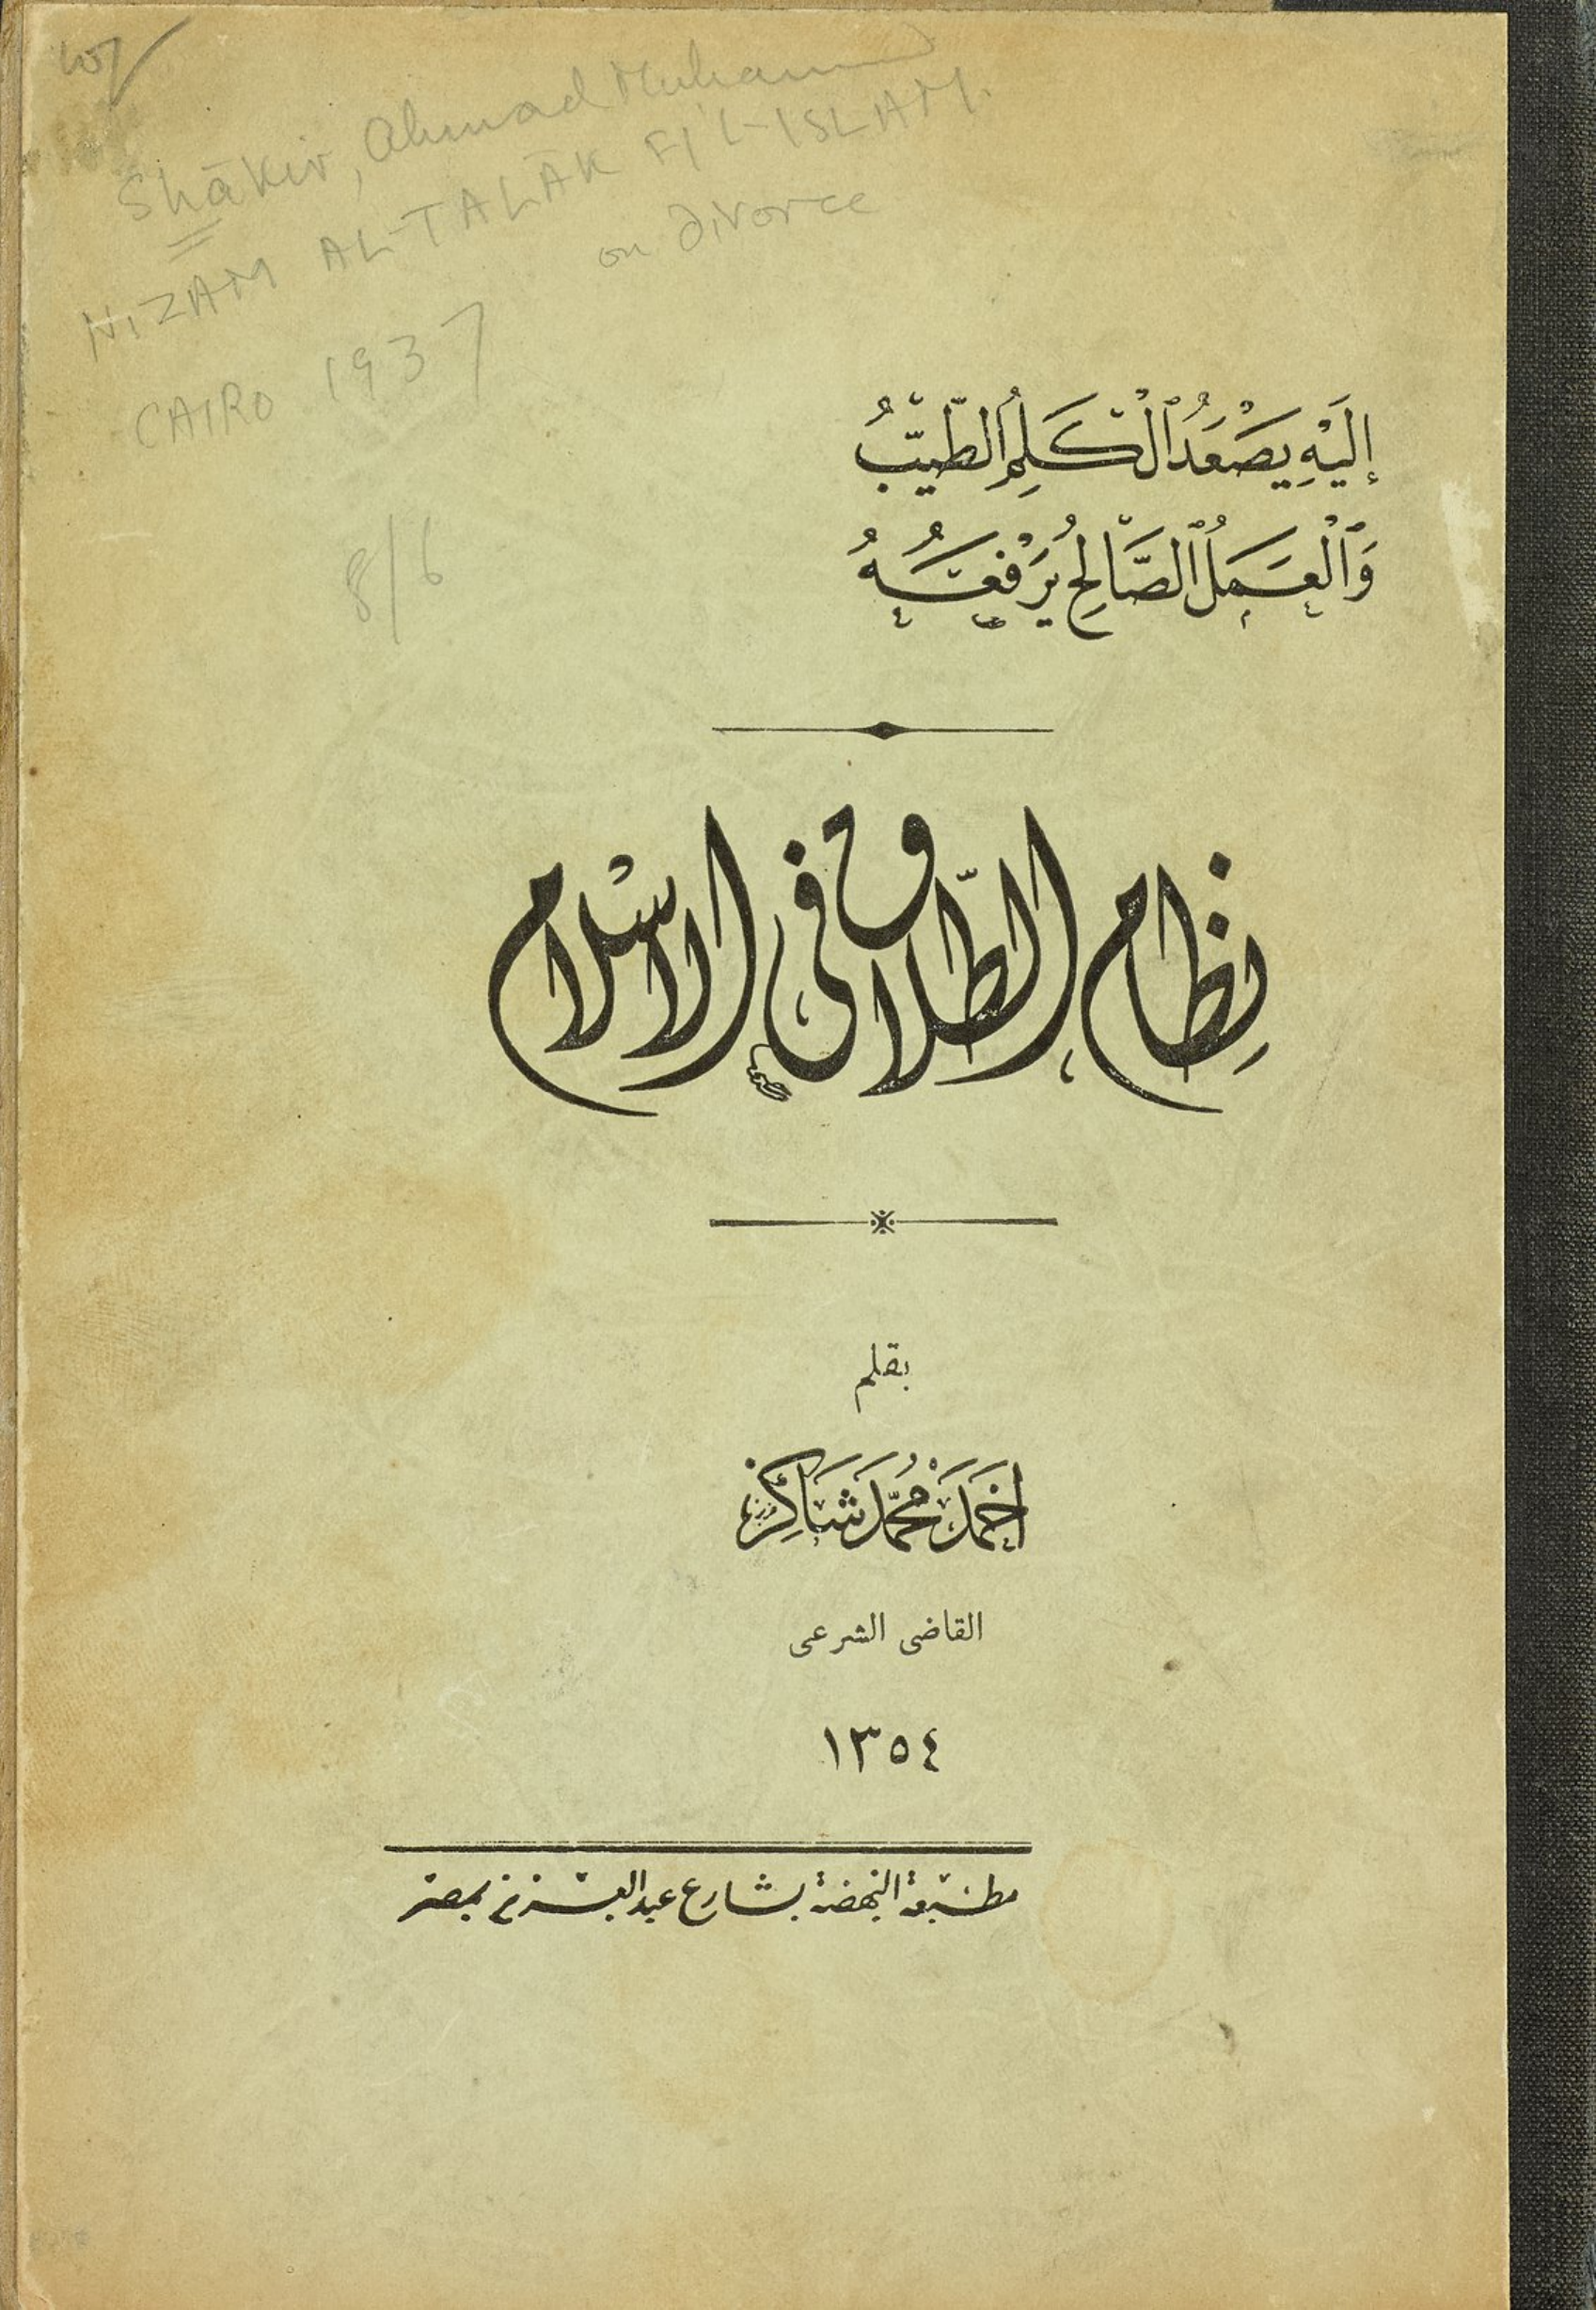 Shākir, Ahmad Muhammad
NIZAM AL-TALĀK FI'L-ISLAM.
on Divorce
CAIRO 1937
8/6
إِلَيْهِ يَصْعَدُ ٱلْكَلِمُ ٱلطَّيِّبُ
وَٱلْعَمَلُ ٱلصَّالِحُ يَرْفَعُهُ
نظام الطلاق فى الاسلام
بقلم
أحمد محمد شاكر
القاضى الشرعى
١٣٥٤
مطبعة النهضة بشارع عبد العزيز بمصر